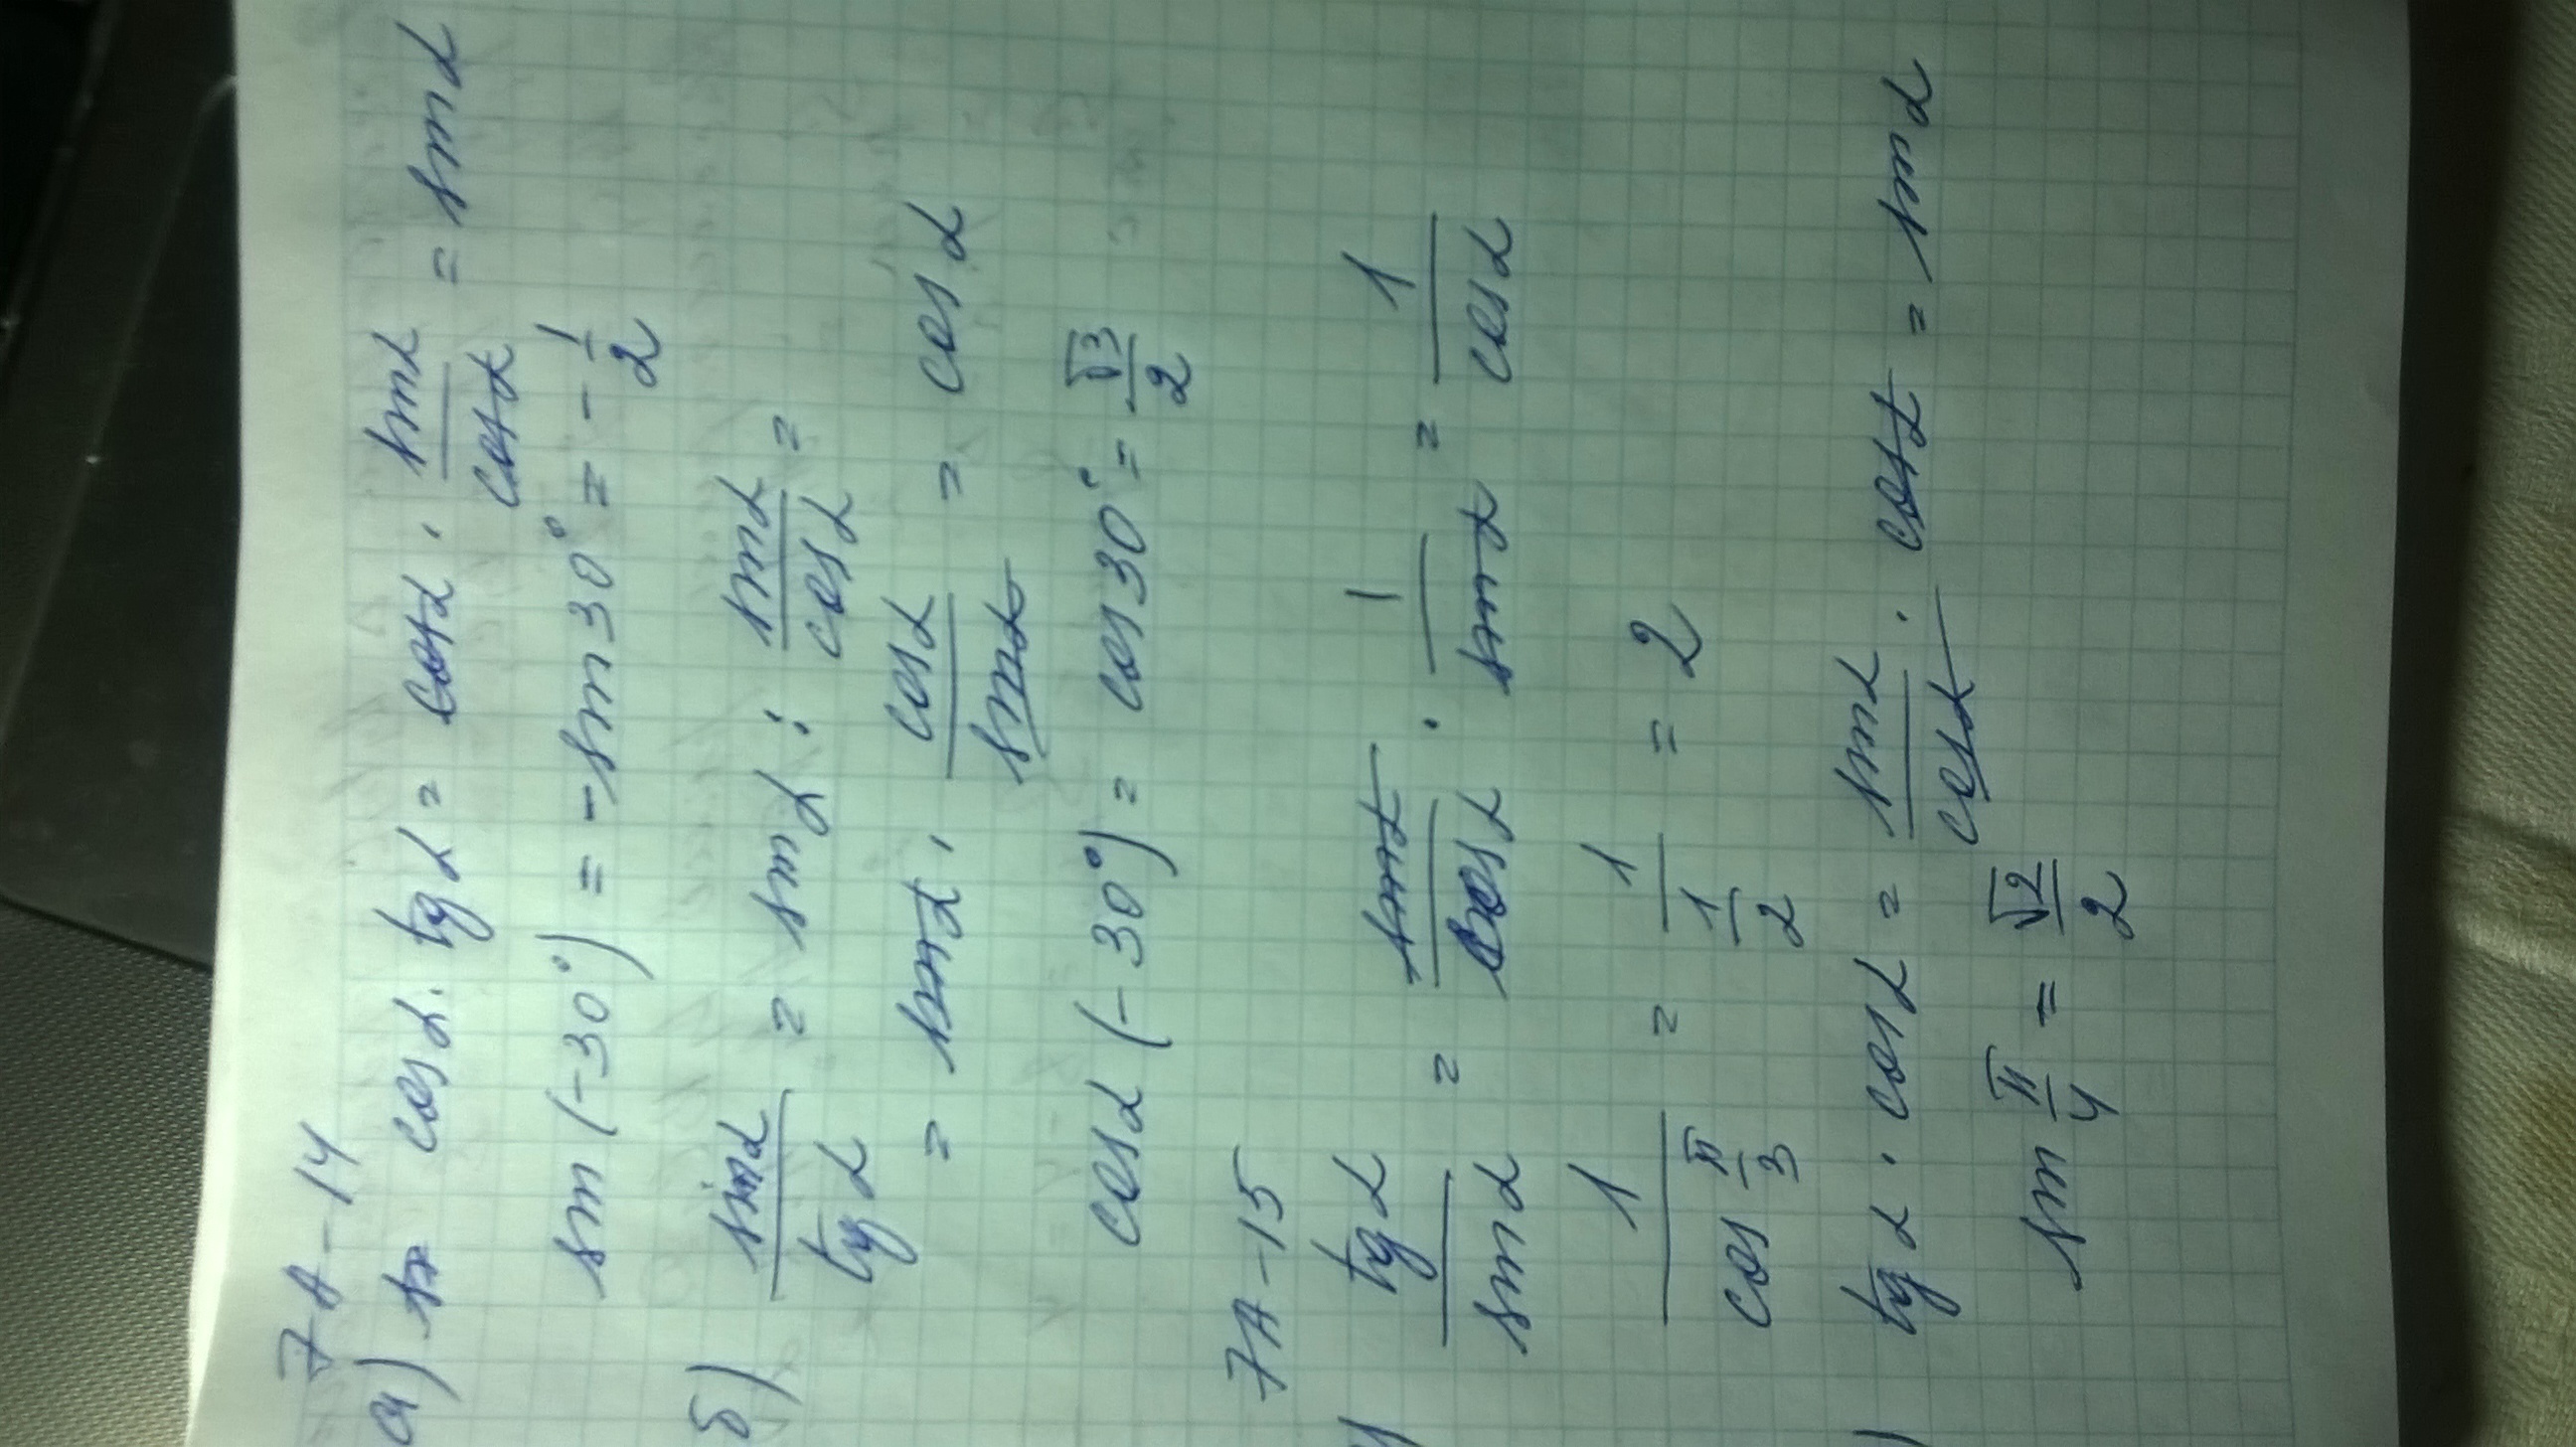 7A-14
а) cosα · tgα = cosα · sinα/cosα = sinα
sin(-30°) = -sin30° = -1/2
б) sinα/tgα = sinα : sinα/cosα =
= sinα · cosα/sinα = cosα
cosα(-30°) = cos30° = √3/2
7A-15
tgα/sinα = sinα/cosα · 1/sinα = 1/cosα
1/cos π/3 = 1/(1/2) = 2
) tgα · cosα = sinα/cosα · cosα = sinα
sin π/4 = √2/2